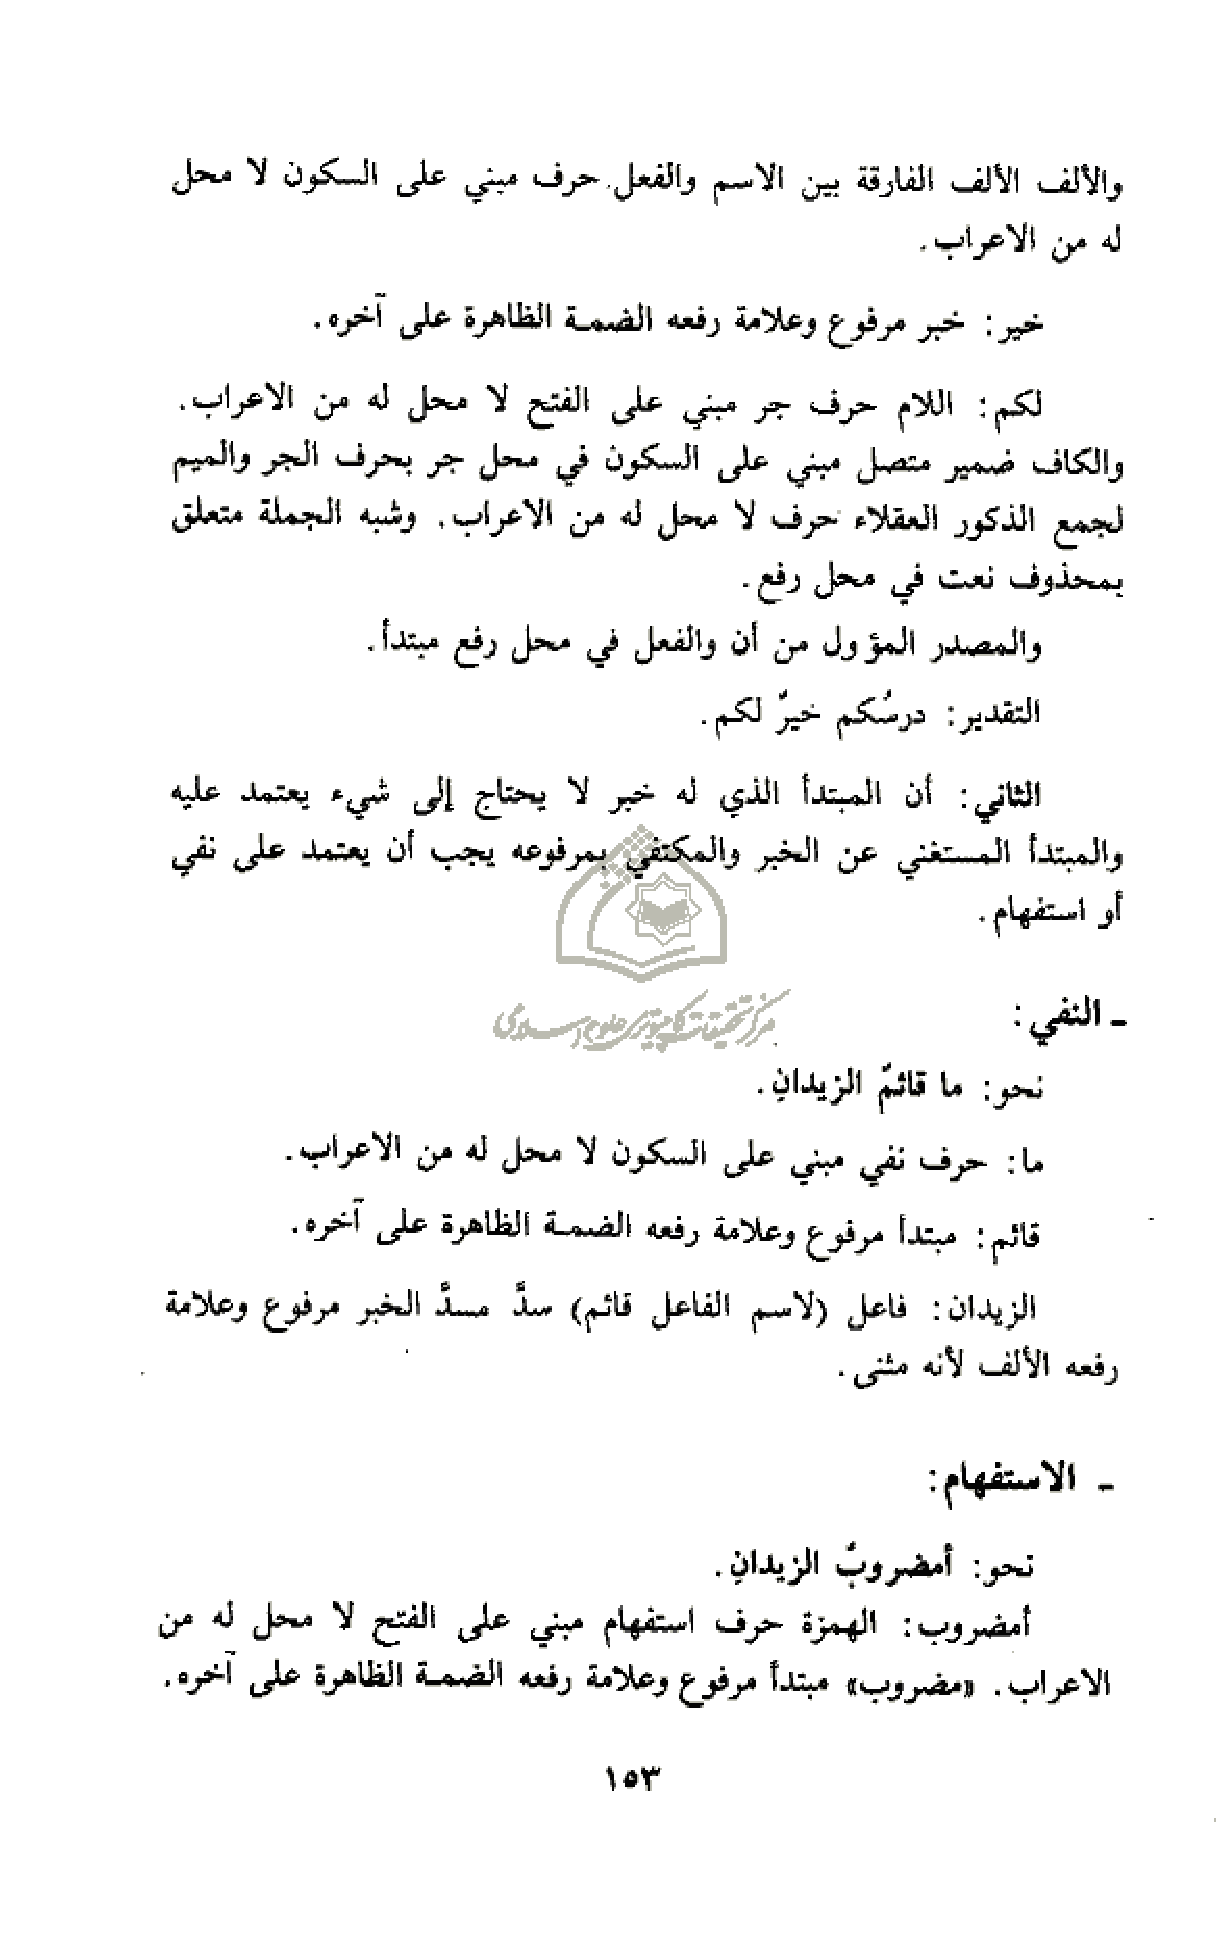 والألف الألف الفارقة بين الاسم والفعل حرف مبني على السكون لا محل
له من الاعراب.
خير: خبر مرفوع وعلامة رفعه الضمة الظاهرة على آخره.
لكم: اللام حرف جر مبني على الفتح لا محل له من الاعراب.
والكاف ضمير متصل مبني على السكون في محل جر بحرف الجر والميم
لجمع الذكور العقلاء حرف لا محل له من الاعراب. وشبه الجملة متعلق
بمحذوف نعت في محل رفع.
والمصدر المؤول من أن والفعل في محل رفع مبتدأ.
التقدير: درسُكم خيرٌ لكم.
الثاني: أن المبتدأ الذي له خبر لا يحتاج إلى شيء يعتمد عليه
والمبتدأ المستغني عن الخبر والمكتفي بمرفوعه يجب أن يعتمد على نفي
أو استفهام.
مركز تحقيقات كامپيوترى علوم اسلامى
ـ النفي:
نحو: ما قائمٌ الزيدانِ.
ما: حرف نفي مبني على السكون لا محل له من الاعراب.
قائم: مبتدأ مرفوع وعلامة رفعه الضمة الظاهرة على آخره.
الزيدان: فاعل (لاسم الفاعل قائم) سدَّ مسدَّ الخبر مرفوع وعلامة
رفعه الألف لأنه مثنى.
ـ الاستفهام:
نحو: أمضروبٌ الزيدانِ.
أمضروب: الهمزة حرف استفهام مبني على الفتح لا محل له من
الاعراب. «مضروب» مبتدأ مرفوع وعلامة رفعه الضمة الظاهرة على آخره.
١٥٣